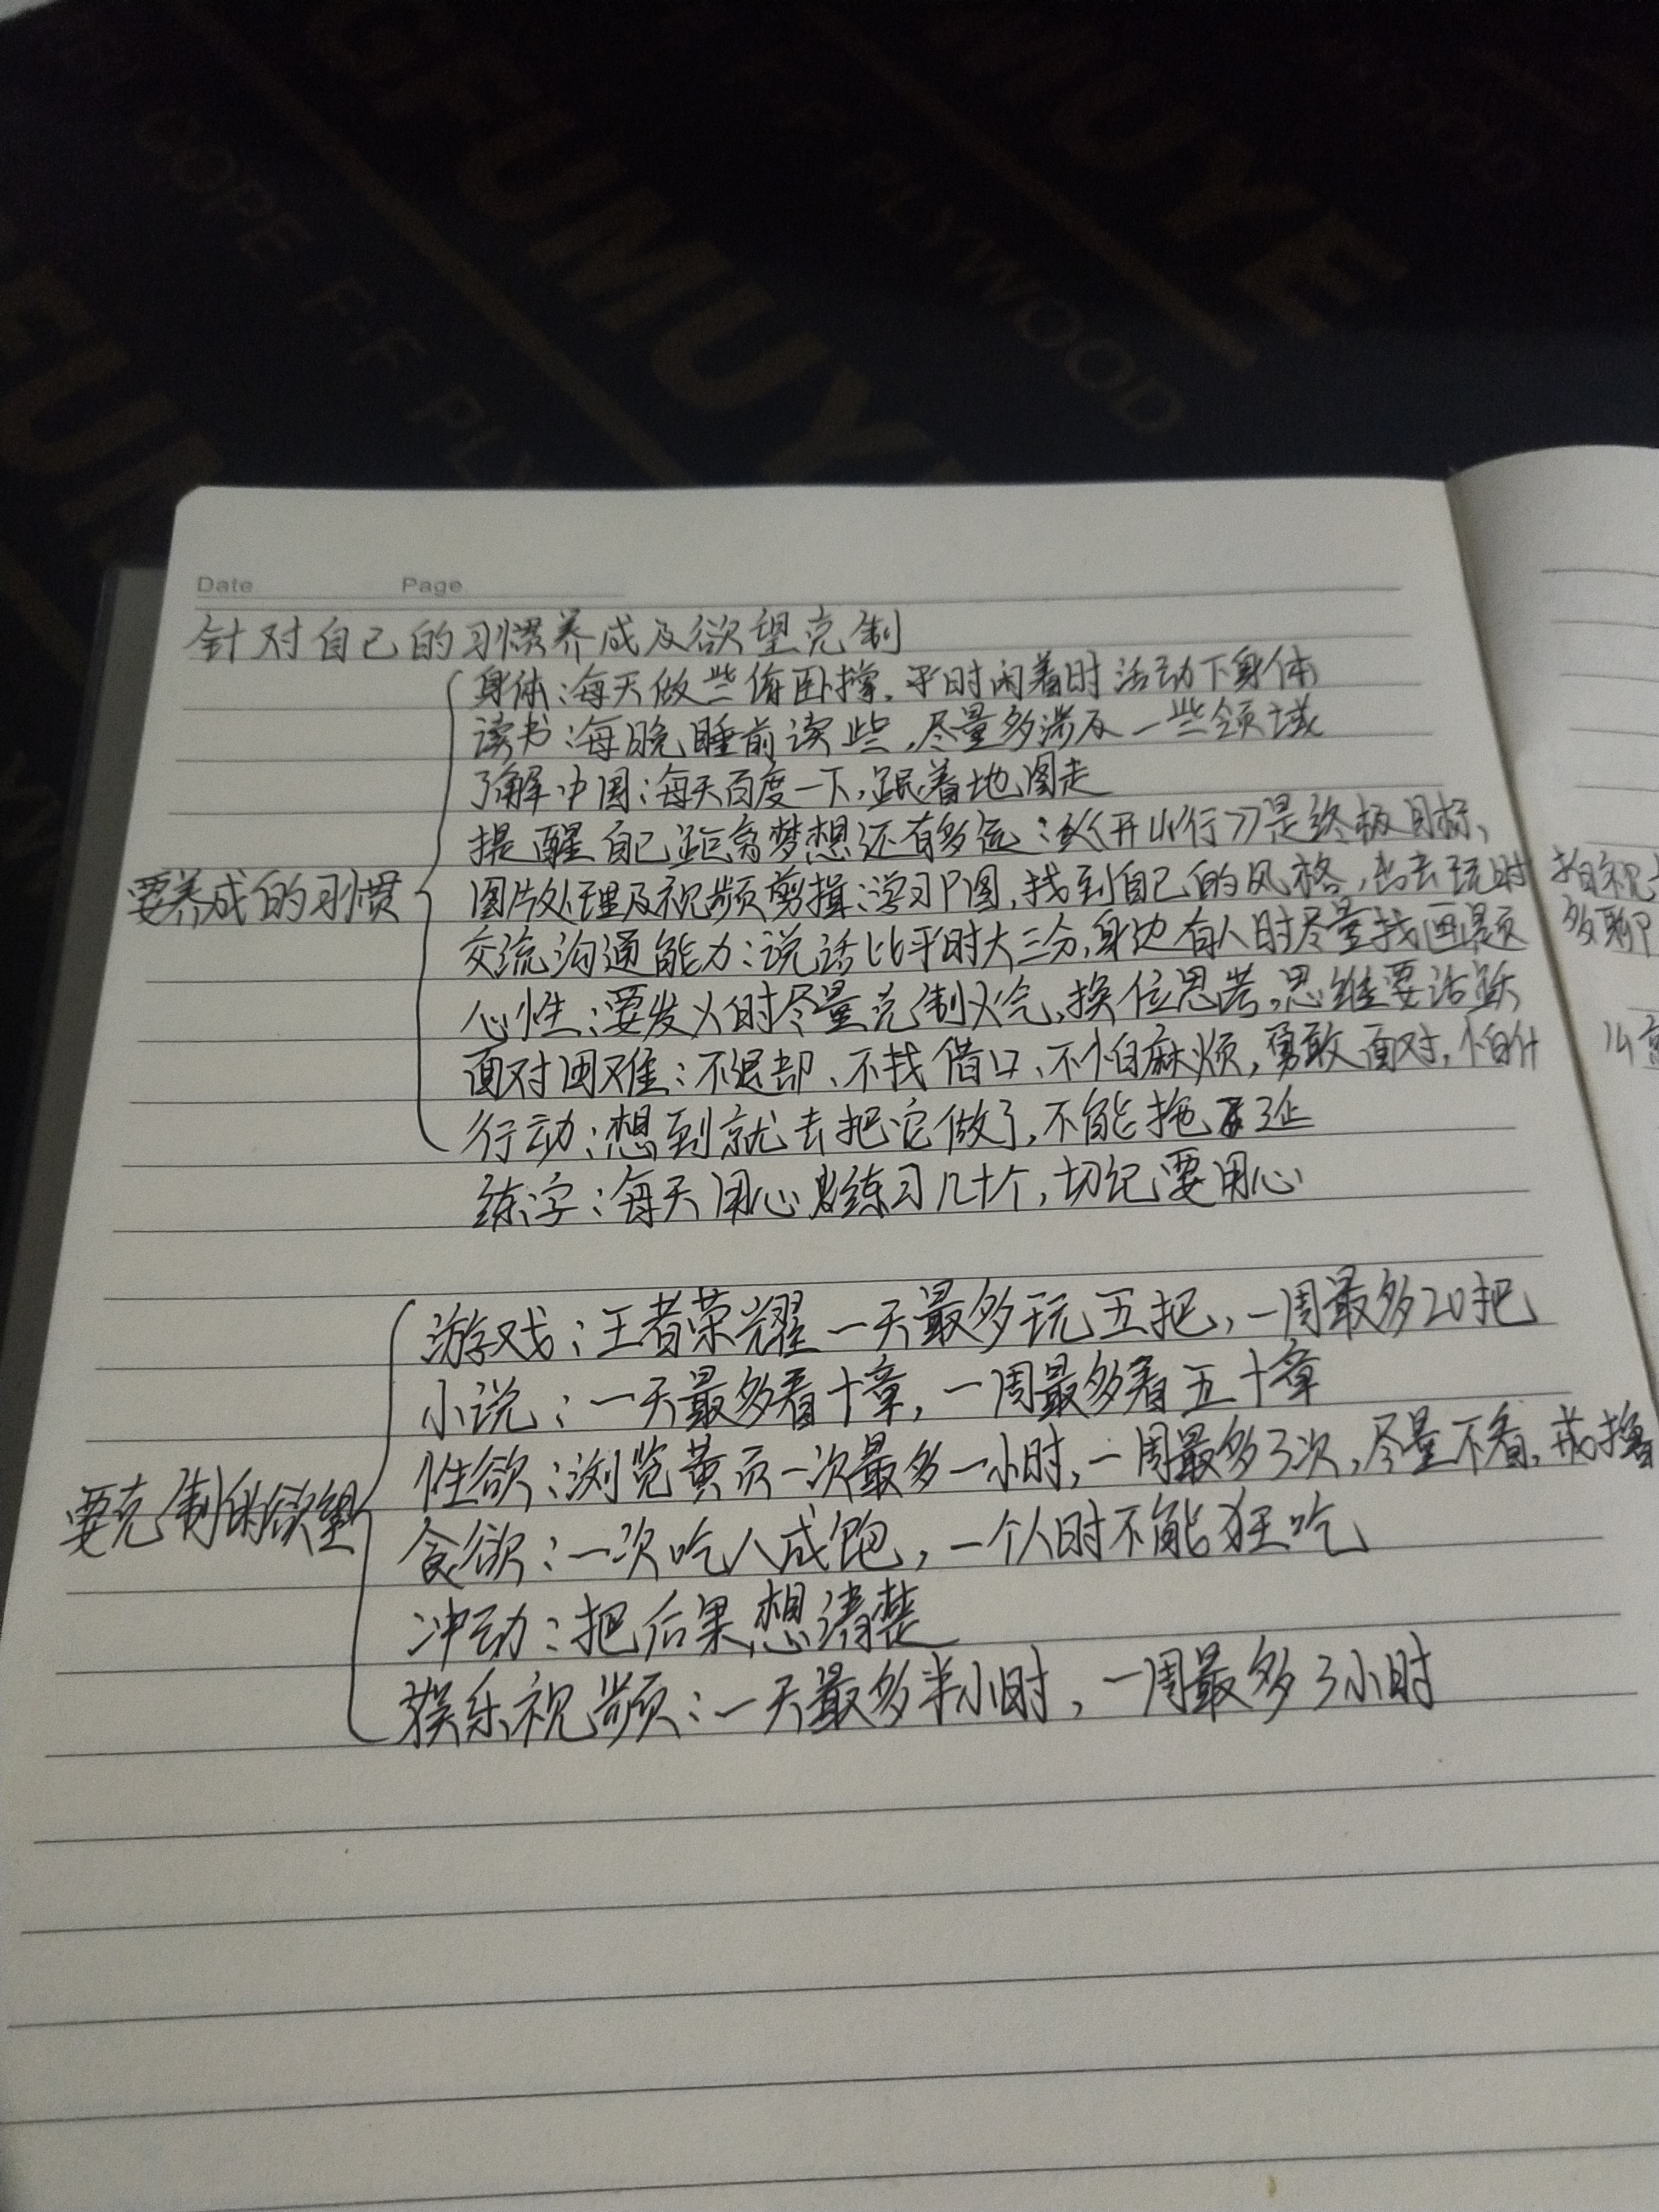 GFUMUYE
MUYE
OPE F-F PLY
PLYWOOD
Date Page
针对自己的习惯养成及欲望克制
身体:每天做些俯卧撑,平时闲着时活动下身体
读书:每晚睡前读些,尽量多涉及一些领域
了解中国:每天百度一下,跟着地图走
提醒自己距离梦想还有多远:《开山行》是终极目标、
要养成的习惯
图片处理及视频剪辑:学习P图,找到自己的风格,出去玩时拍视
交流沟通能力:说话比平时大三分,身边有人时尽量找画题多聊
心性:要发火时尽量克制火气,换位思考,思维要活跃
面对困难:不退却、不找借口、不怕麻烦,勇敢面对,怕什么
行动:想到就去把它做了,不能拖延
练字:每天用心练习几十个,切记要用心
游戏:王者荣耀一天最多玩五把,一周最多20把
小说:一天最多看十章,一周最多看五十章
性欲:浏览黄页一次最多一小时,一周最多3次,尽量不看,戒撸
要克制的欲望
食欲:一次吃八成饱,一个人时不能狂吃
冲动:把后果想清楚
娱乐视频:一天最多半小时,一周最多3小时